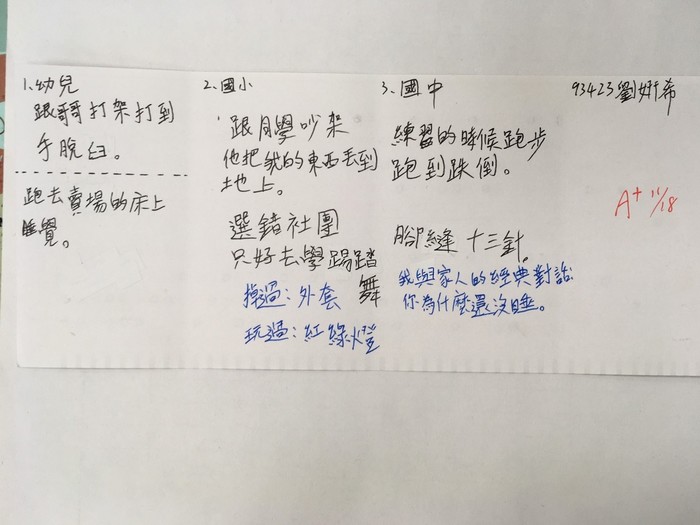 1、幼兒
跟哥哥打架打到
手脫臼。
跑去賣場的床上
睡覺。
2、國小
跟同學吵架
他把我的東西丟到
地上。
選錯社團
只好去學踢踏
舞
掉過：外套
玩過：紅綠燈
3、國中
練習的時候跑步
跑到跌倒。
腳縫十三針。
我與家人的經典對話:
你為什麼還沒睡。
93423劉妍希
A+ 11/18